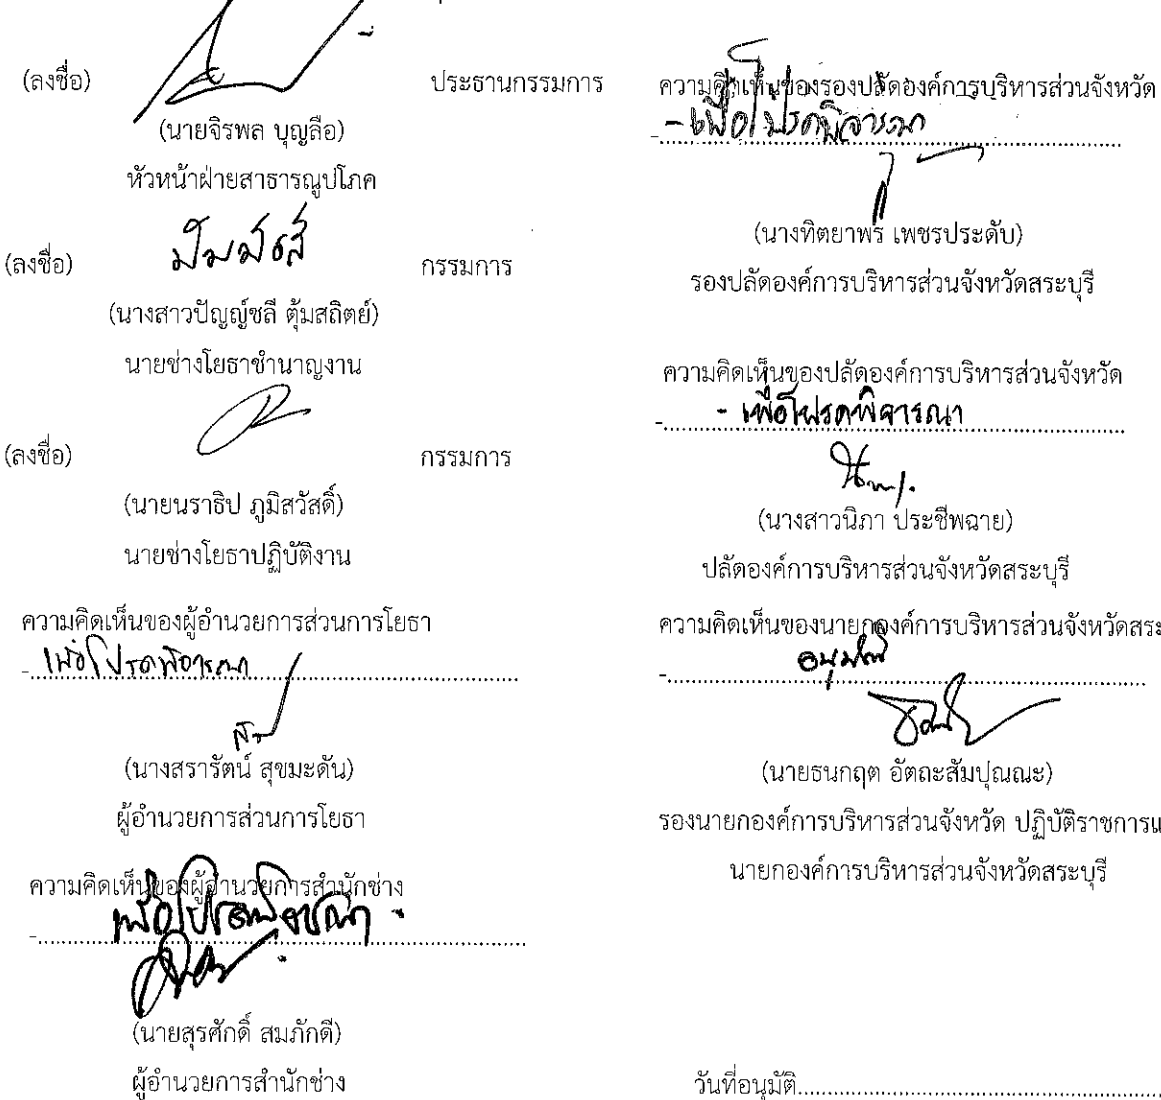 (ลงชื่อ) ประธานกรรมการ
(นายจิรพล บุญลือ)
หัวหน้าฝ่ายสาธารณูปโภค
(ลงชื่อ) กรรมการ
(นางสาวปัญญ์ชลี ตุ้มสถิตย์)
นายช่างโยธาชำนาญงาน
(ลงชื่อ) กรรมการ
(นายนราธิป ภูมิสวัสดิ์)
นายช่างโยธาปฏิบัติงาน
ความคิดเห็นของผู้อำนวยการส่วนการโยธา
- เพื่อโปรดพิจารณา
(นางสรารัตน์ สุขมะดัน)
ผู้อำนวยการส่วนการโยธา
ความคิดเห็นของผู้อำนวยการสำนักช่าง
- เพื่อโปรดพิจารณา
(นายสุรศักดิ์ สมภักดี)
ผู้อำนวยการสำนักช่าง
ความคิดเห็นของรองปลัดองค์การบริหารส่วนจังหวัด
- เพื่อโปรดพิจารณา
(นางทิตยาพร เพชรประดับ)
รองปลัดองค์การบริหารส่วนจังหวัดสระบุรี
ความคิดเห็นของปลัดองค์การบริหารส่วนจังหวัด
- เพื่อโปรดพิจารณา
(นางสาวนิภา ประชีพฉาย)
ปลัดองค์การบริหารส่วนจังหวัดสระบุรี
ความคิดเห็นของนายกองค์การบริหารส่วนจังหวัดสระ
- อนุมัติ
(นายธนกฤต อัตถะสัมปุณณะ)
รองนายกองค์การบริหารส่วนจังหวัด ปฏิบัติราชการแ
นายกองค์การบริหารส่วนจังหวัดสระบุรี
วันที่อนุมัติ